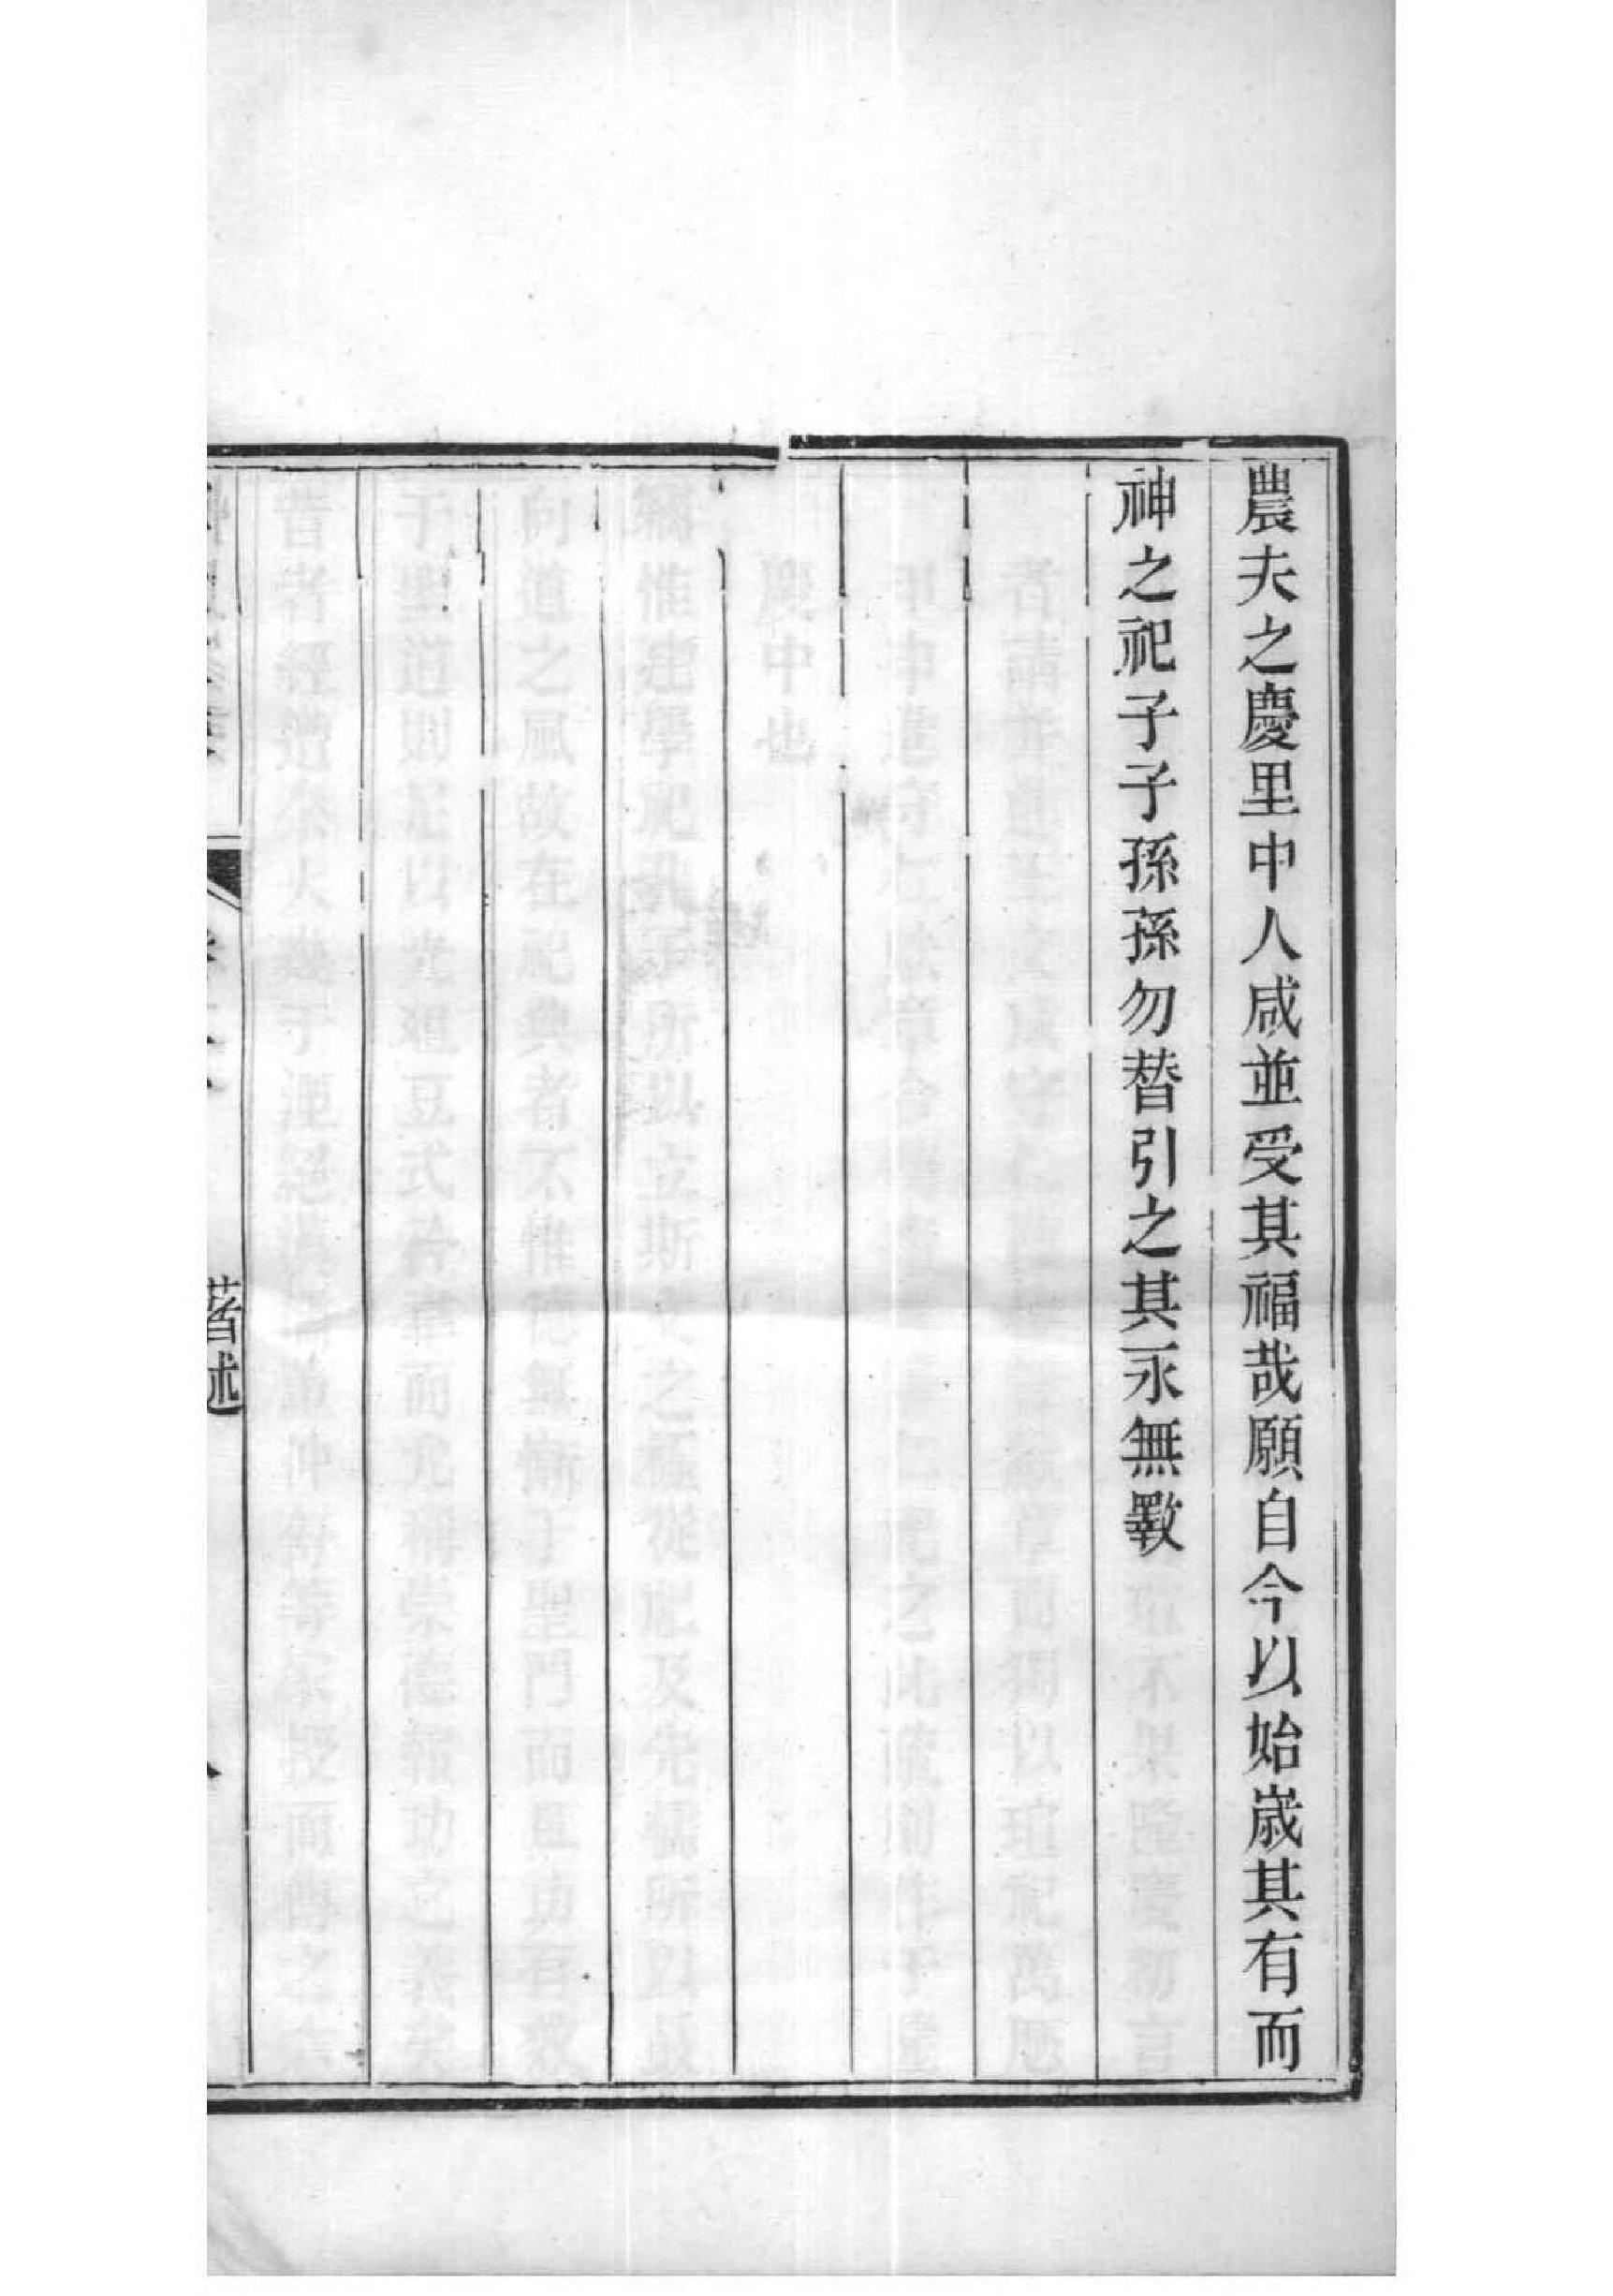 農夫之慶里中人咸並受其福哉願自今以始歲其有而
神之祀子子孫孫勿替引之其永無斁
著述